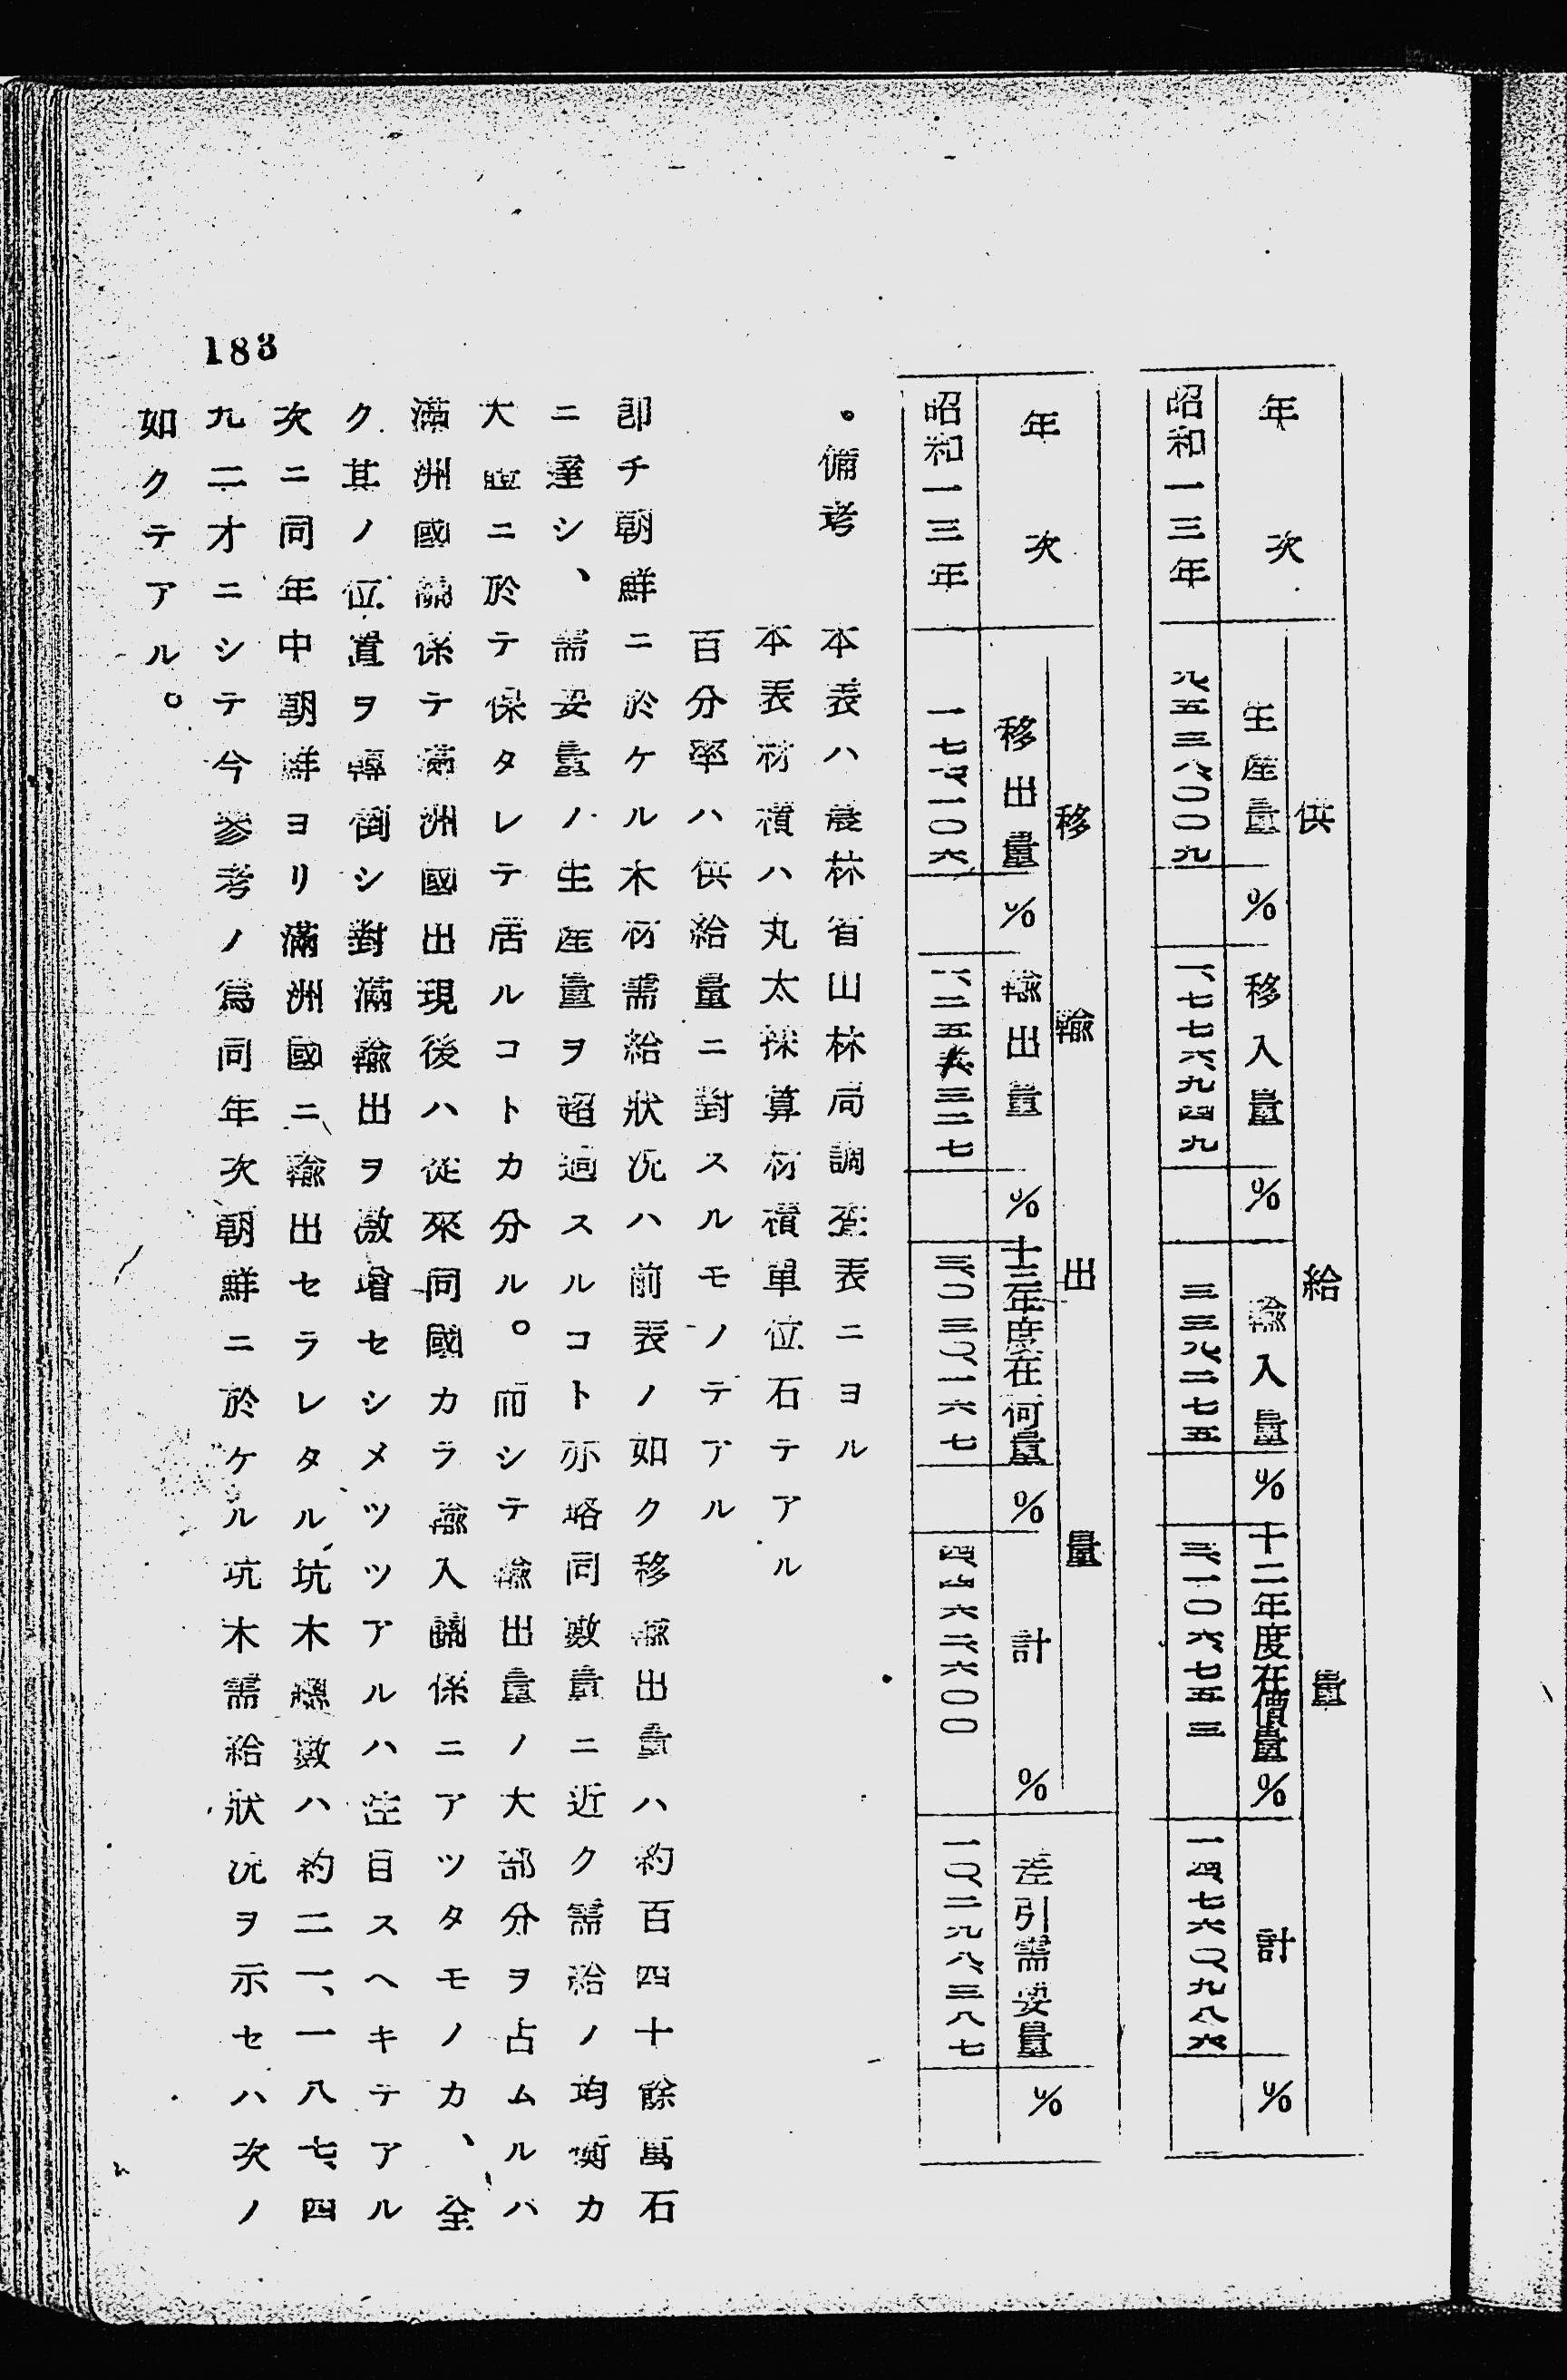 供給量
年次 生産量 % 移入量 % 輸入量 % 十二年度在價量 % 計 %
昭和一三年 九、五三八、〇〇九 一、七七六、九四九 三三九、二七五 三、一〇六、七五三 一四、七六〇、九八六
移輸出量
年次 移出量 % 輸出量 % 十三年度在荷量 % 計 % 差引需要量 %
昭和一三年 一七六、一〇六 一、二五六、三二七 三、〇三〇、一六七 四、四六二、六〇〇 一〇、二九八、三八七
。備考 本表ハ農林省山林局調査表ニヨル
本表材積ハ丸太採算材積單位石テアル
百分率ハ供給量ニ對スルモノテアル
卽チ朝鮮ニ於ケル木材需給狀況ハ前表ノ如ク移輸出量ハ約百四十餘萬石
ニ達シ、需要量ノ生産量ヲ超過スルコト亦略同數量ニ近ク需給ノ均衡カ
大ニ於テ保タレテ居ルコトカ分ル。而シテ輸出量ノ大部分ヲ占ムルハ
滿洲國關係テ滿洲國出現後ハ從來同國カラ輸入關係ニアツタモノカ、全
ク其ノ位置ヲ轉倒シ對滿輸出ヲ激增セシメツツアルハ注目スヘキテアル
次ニ同年中朝鮮ヨリ滿洲國ニ輸出セラレタル坑木總數ハ約二一、一八七、四
九二才ニシテ今參考ノ爲同年次朝鮮ニ於ケル坑木需給狀況ヲ示セハ次ノ
如クテアル。
183